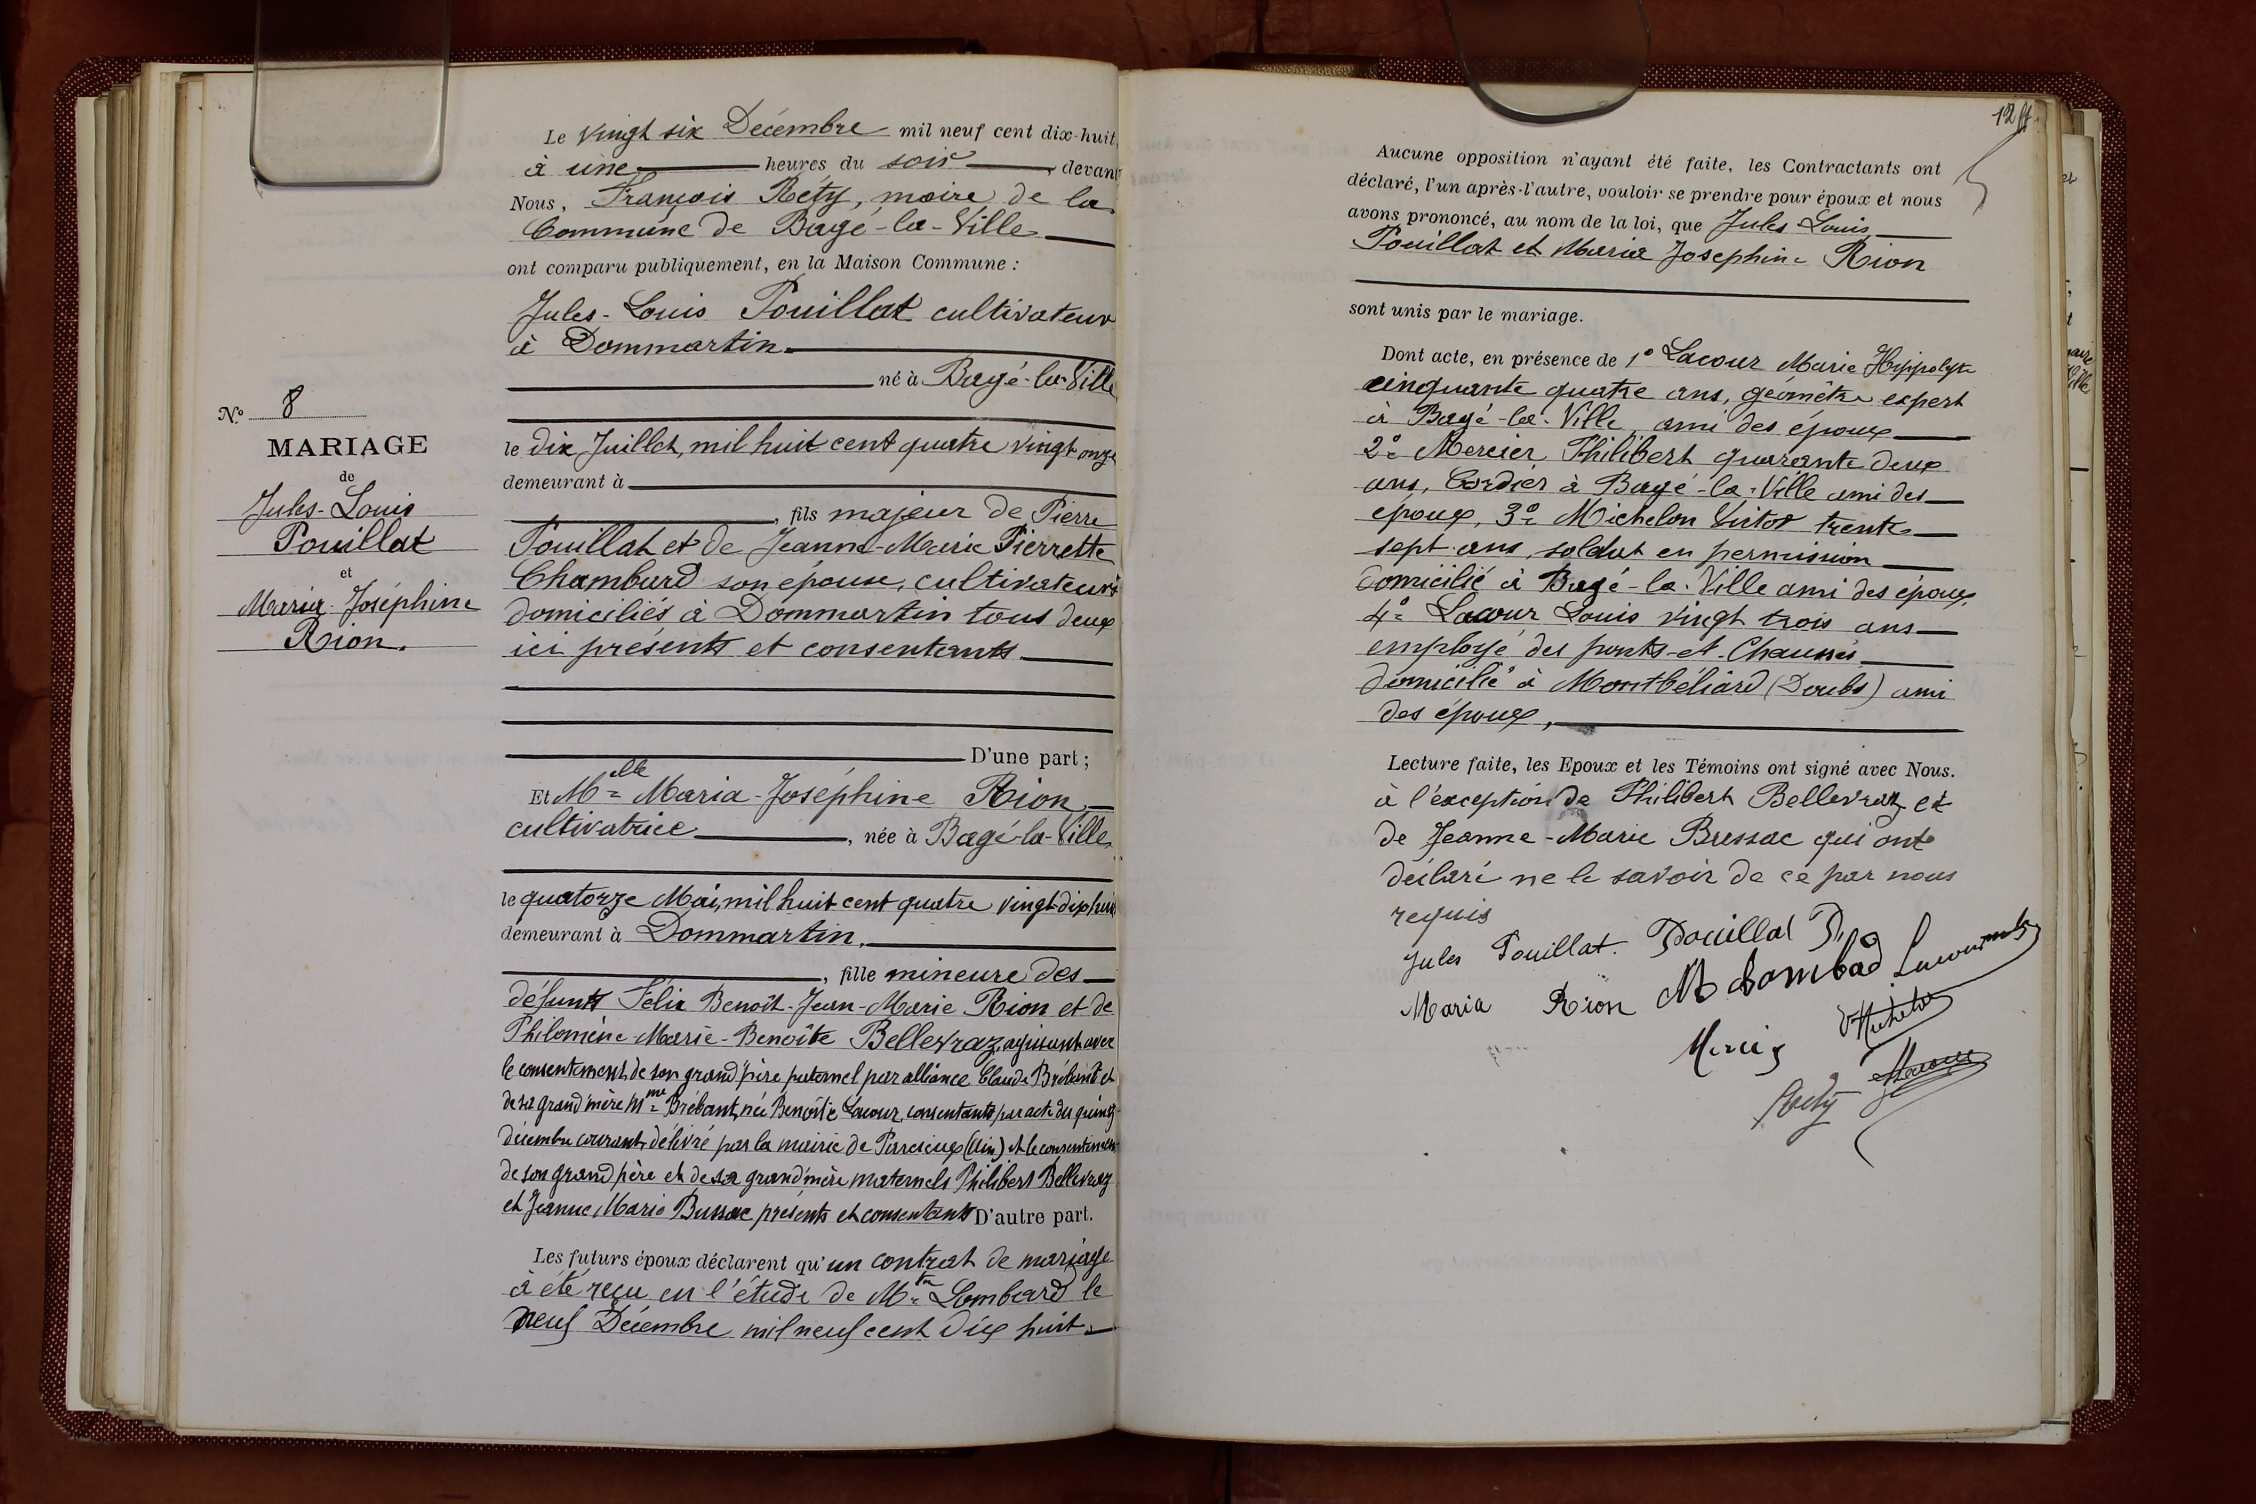 Le vingt six Décembre mil neuf cent dix-huit,
à une heures du soir, devant
Nous, François Rety, maire de la
Commune de Bagé-la-Ville
ont comparu publiquement, en la Maison Commune :
Jules-Louis Pouillat cultivateur
à Dommartin
né à Bagé-la-Ville
le dix Juillet, mil huit cent quatre vingt onze
demeurant à
, fils majeur de Pierre
Pouillat et de Jeanne-Marie Pierrette
Chambard son épouse, cultivateurs
domiciliés à Dommartin tous deux
ici présents et consentants.
D'une part ;
Et Melle Maria-Joséphine Rion
cultivatrice, née à Bagé-la-Ville
le quatorze Mai, mil huit cent quatre vingt-dix huit
demeurant à Dommartin,
, fille mineure des
défunts Félix Benoît-Jean-Marie Rion et de
Philomène-Marie-Benoîte Bellevraz, agissant avec
le consentement de son grand'père paternel par alliance Claude Brébant et
de sa grand'mère Mme Brébant, née Benoîte Lacour, consentants par acte du quinze
décembre courant, délivré par la mairie de Parcieux (Ain) et le consentement
de son grand père et de sa grand'mère maternels Philibert Bellevraz
et Jeanne Marie Bressac présents et consentants D'autre part.
Les futurs époux déclarent qu'un contrat de mariage
à été reçu en l'étude de Mtre Lombard le
neuf Décembre mil neuf cent dix huit
No 8
MARIAGE
de
Jules-Louis
Pouillat
et
Maria-Joséphine
Rion.
12
Aucune opposition n'ayant été faite, les Contractants ont
déclaré, l'un après-l'autre, vouloir se prendre pour époux et nous
avons prononcé, au nom de la loi, que Jules Louis
Pouillat et Maria Josephine Rion
sont unis par le mariage.
Dont acte, en présence de 1° Lacour Marie Hippolyte
cinquante quatre ans, géomètre expert
à Bagé-la-Ville, ami des époux
2° Mercier Philibert quarante deux
ans, Cordier à Bagé-la-Ville ami des
époux, 3° Michelon Victor trente
sept ans, soldat en permission
domicilié à Bagé-la-Ville ami des époux,
4° Lacour Louis vingt trois ans
employé des ponts-et-Chaussés
domicilié à Montbéliard (Doubs) ami
des époux,
Lecture faite, les Epoux et les Témoins ont signé avec Nous.
à l'exception de Philibert Bellevraz et
de Jeanne-Marie Bressac qui ont
déclaré ne le savoir de ce par nous
requis
Jules Pouillat. Pouillat P.
Maria Rion
Rety